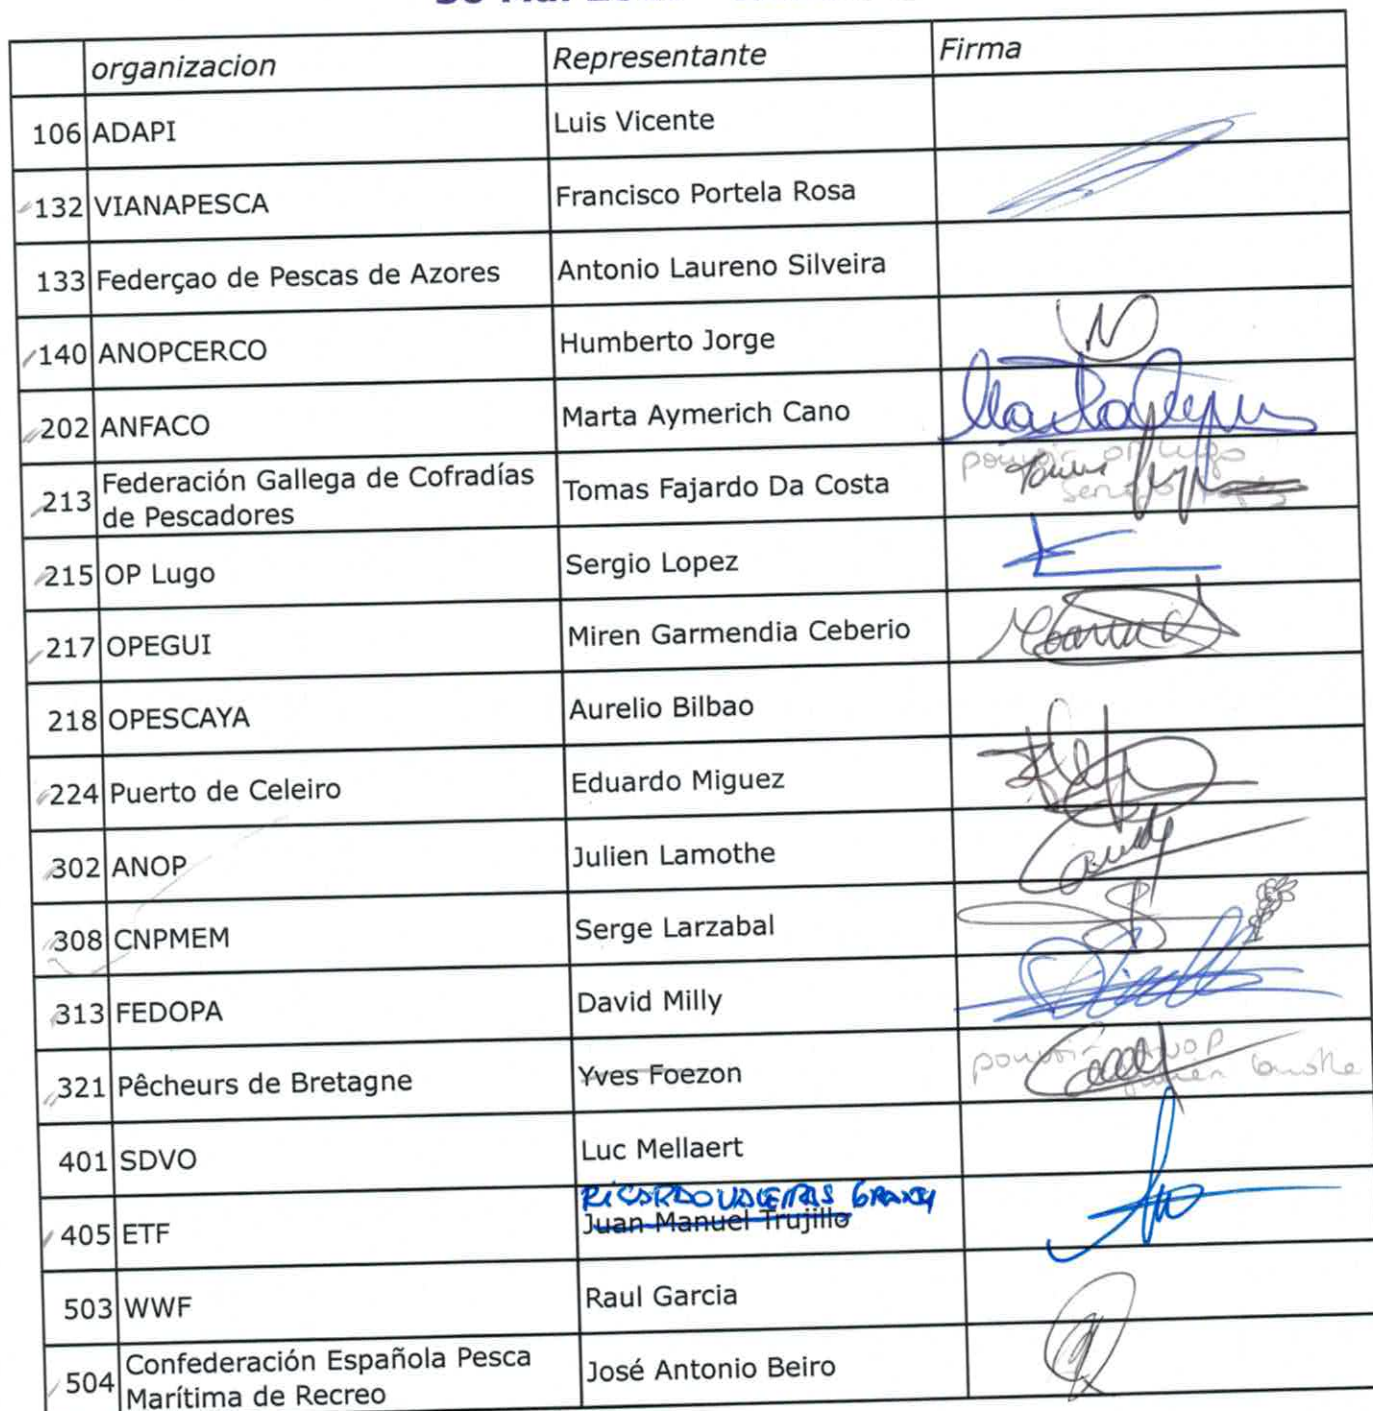 organizacion Representante Firma
106 ADAPI Luis Vicente
132 VIANAPESCA Francisco Portela Rosa
133 Federçao de Pescas de Azores Antonio Laureno Silveira
140 ANOPCERCO Humberto Jorge
202 ANFACO Marta Aymerich Cano
213 Federación Gallega de Cofradías
de Pescadores Tomas Fajardo Da Costa pouvoir OP Lugo
215 OP Lugo Sergio Lopez
217 OPEGUI Miren Garmendia Ceberio
218 OPESCAYA Aurelio Bilbao
224 Puerto de Celeiro Eduardo Miguez
302 ANOP Julien Lamothe
308 CNPMEM Serge Larzabal
313 FEDOPA David Milly
321 Pêcheurs de Bretagne Yves Foezon
401 SDVO Luc Mellaert
RICARDO
405 ETF Juan Manuel Trujillo
503 WWF Raul Garcia
504 Confederación Española Pesca
Marítima de Recreo José Antonio Beiro